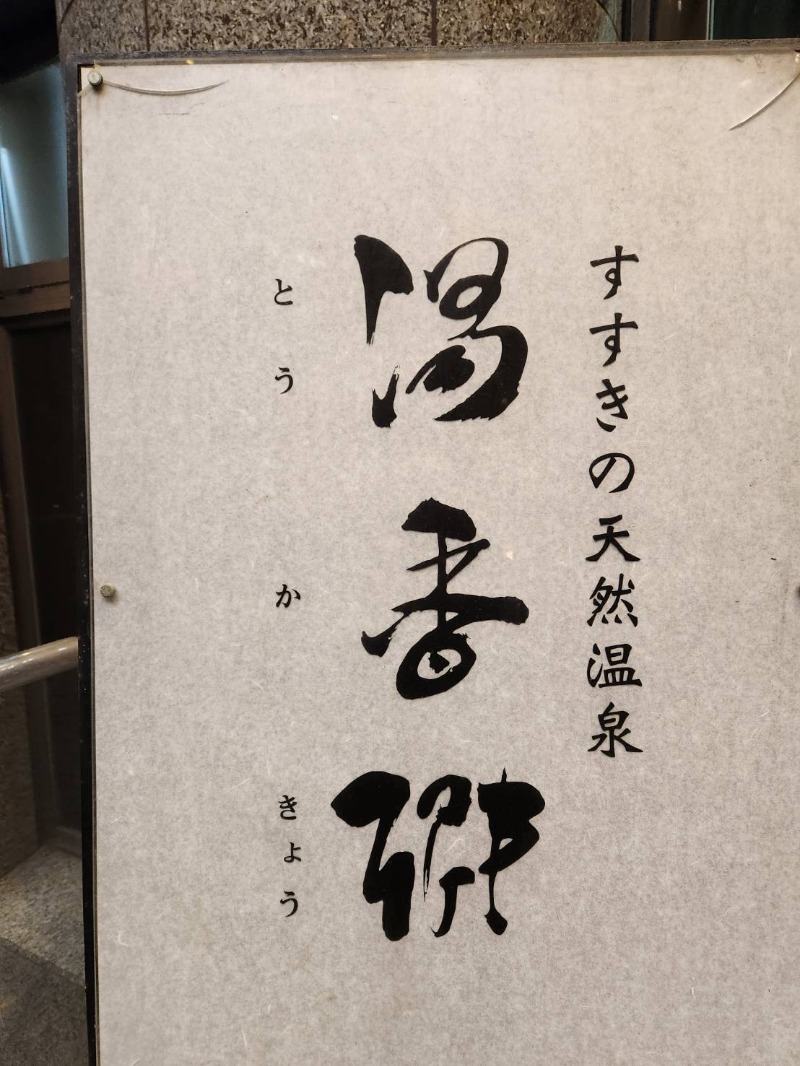 すすきの天然温泉
湯香郷
とうかきょう